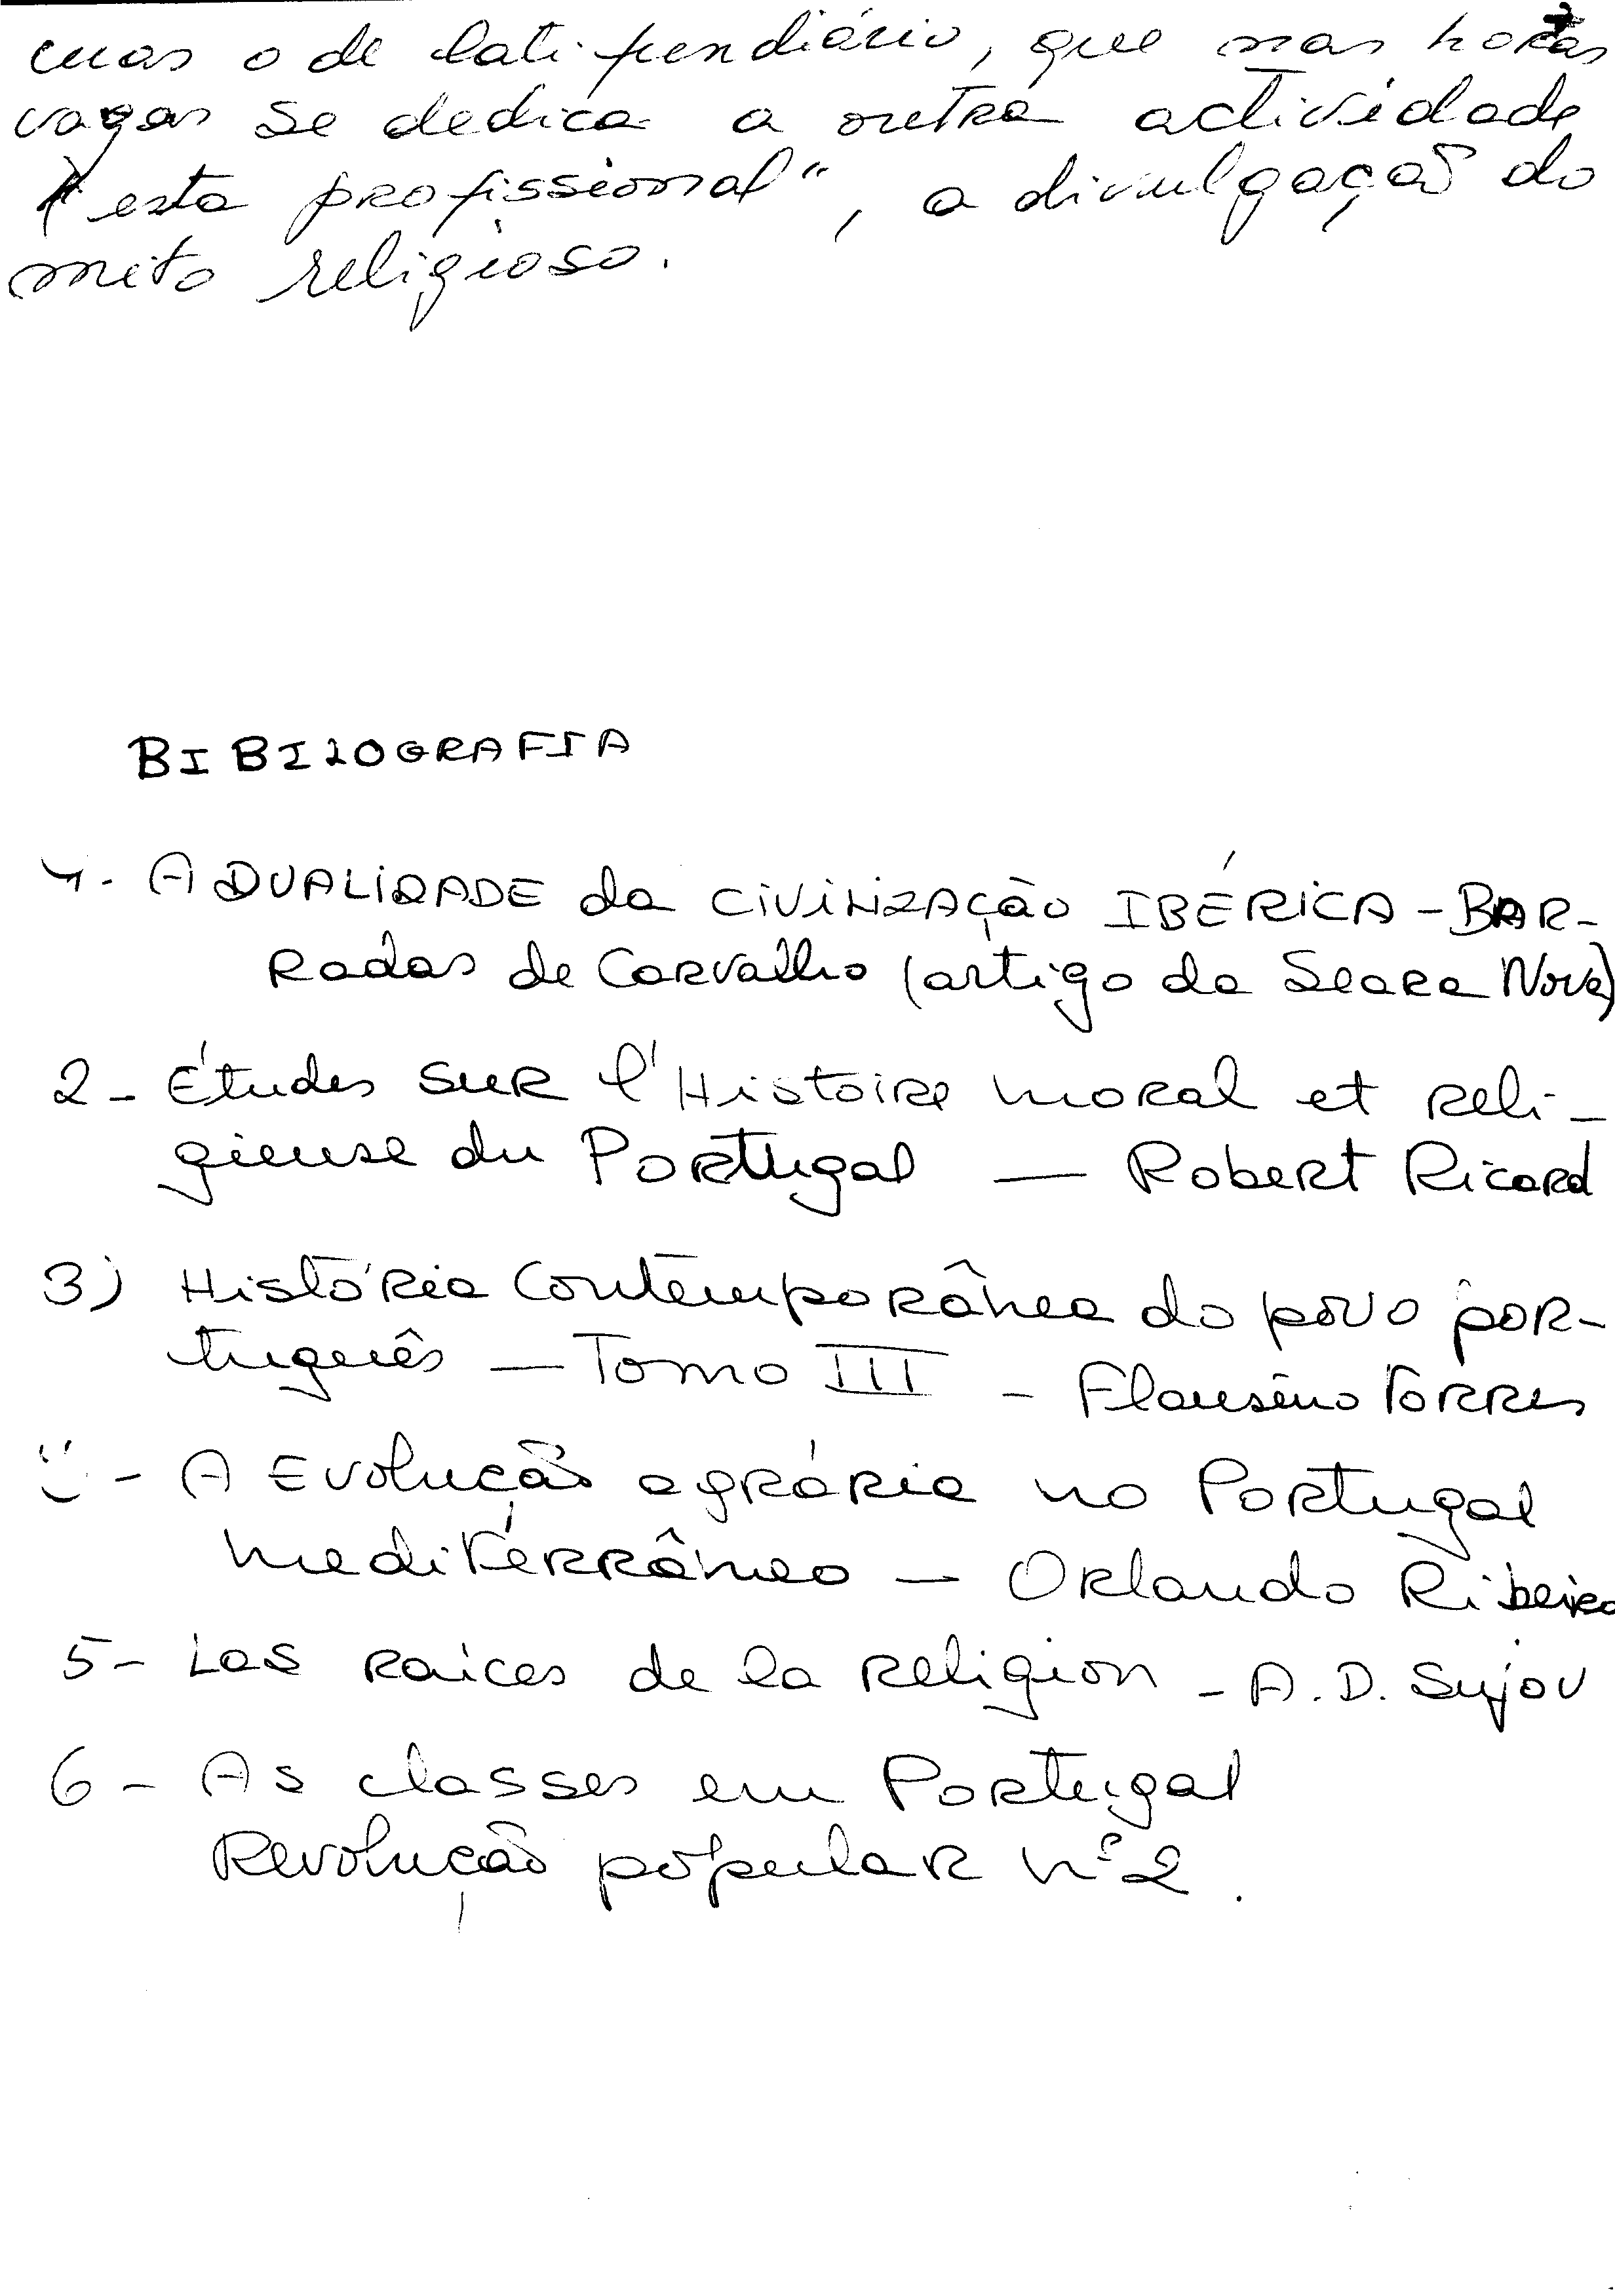 mas o de latifundiário, que nas horas
vagas se dedica a outra actividade
(esta profissional", a divulgação do
mito religioso.
BIBILOGRAFIA
1. A DUALIDADE da CiViLiZAÇão IBÉRiCA - BAR-
Radas de Carvalho (artigo da Seara Nova)
2 - Études sur l'Histoire moral et reli-
gieuse du Portugal — Robert Ricard
3) História Contemporânea do povo por-
tuguês — Tomo III - Flausino Torres
- A Evolução agrária no Portugal
mediterrâneo — Orlando Ribeiro
5 - Las raices de la religion - A. D. Sujov
6 - As classes em Portugal
Revolução popular nº 2.